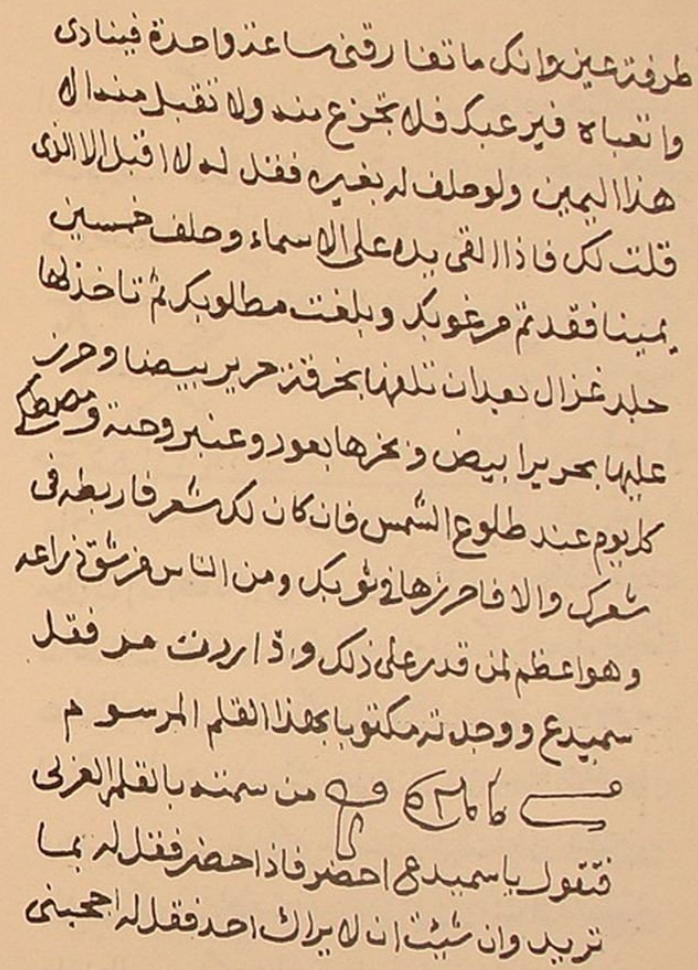 طرفة عين وانك ما تفارقنى ساعة واحدة فينادى
واتعباه فيرعبك فلا تجزع منه ولا تقبل منه الا
هذا اليمين ولو حلف له بغيره فقل له لا اقبل الا الذى
قلت لك فاذا القى يده على الاسماء وحلف خمسين
يمينا فقد تم مرغوبك وبلغت مطلوبك ثم تاخذ لها
جلد غزال بعد ان تلفها بخرقة حرير بيضا وحرز
عليها بحريرا بيض وبخرها بعود وعنبر
كل يوم عند طلوع الشمس فان كان لك شعر فاربطه فى
شعرك والا فاحرزها فى ثوبك ومن الناس من شق ذراعه
وهو اعظم لمن قدر على ذلك واذا اردت فقل
سميدع ووجدته مكتوبا بهذا القلم المرسوم
من سمته بالقلم
فتقول يا سميدع احضر فاذا احضر فقل له بما
تريد وان شئت ان لا يراك احد فقل له احجبنى